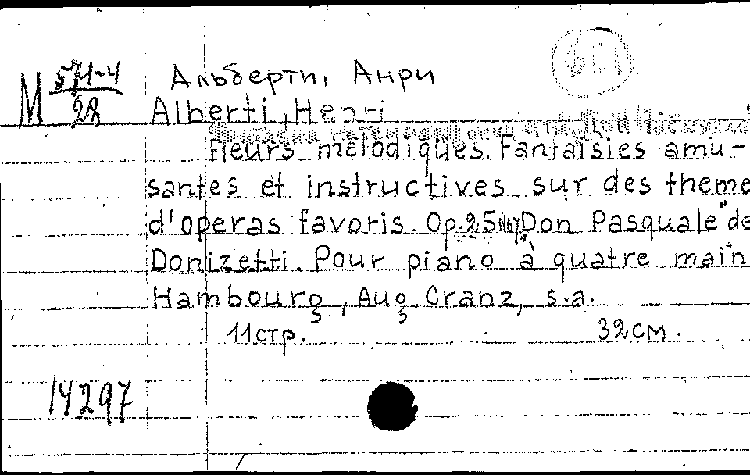 М 571-4/28
Альберти, Анри
Alberti, Henri
Fleurs mélodiques. Fantaisies amu-
santes et instructives sur des theme
d'operas favoris. Op. 25 Don Pasquale" de
Donizetti. Pour piano à quatre main
Hambourg, Aug. Cranz, s.a.
11 стр. 32 см.
14297